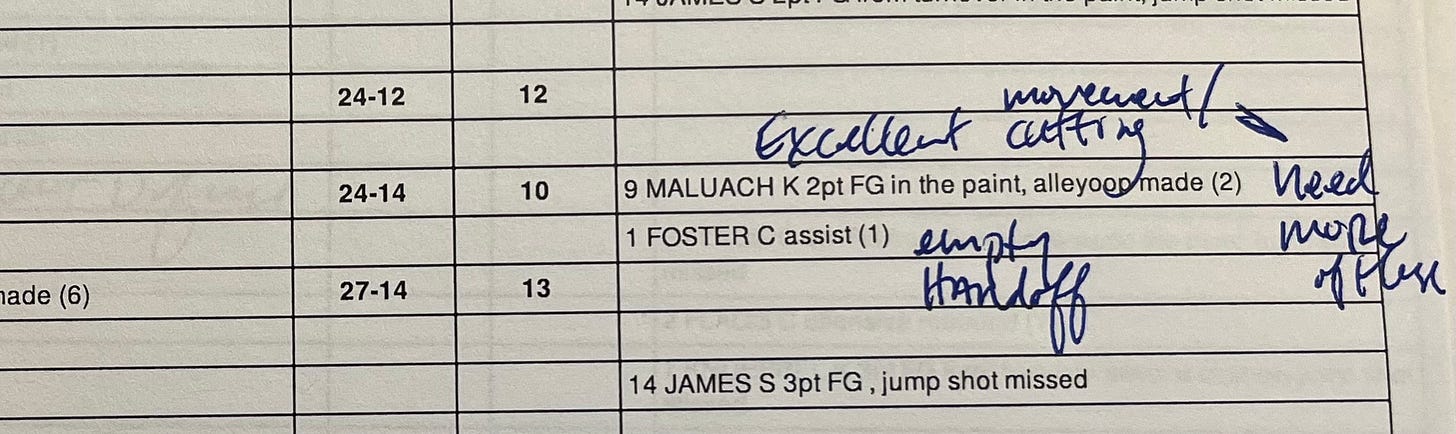 14 JAMES S 2pt FG from turnover in the paint, jump shot missed
24-12 12 movement/
Excellent cutting
24-14 10 9 MALUACH K 2pt FG in the paint, alleyoop made (2) need
1 FOSTER C assist (1) empty more
made (6) 27-14 13 Handoff of these
14 JAMES S 3pt FG , jump shot missed